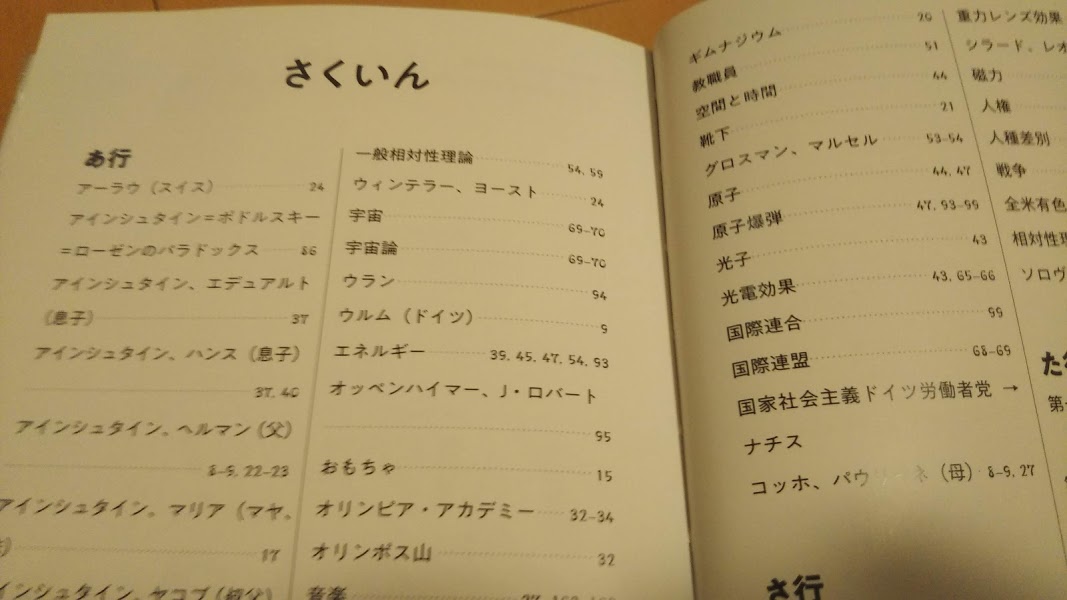 さくいん
あ行
アーラウ（スイス） 24
アインシュタイン＝ポドルスキー
＝ローゼンのパラドックス 86
アインシュタイン、エデュアルト
（息子） 37
アインシュタイン、ハンス（息子）
37, 40
アインシュタイン、ヘルマン（父）
8-9, 22-23
アインシュタイン、マリア（マヤ、
17
インシュタイン、ヤコブ（叔父）
一般相対性理論 54, 59
ウィンテラー、ヨースト 24
宇宙 69-70
宇宙論 69-70
ウラン 94
ウルム（ドイツ） 9
エネルギー 39, 45, 47, 54, 93
オッペンハイマー、J・ロバート
95
おもちゃ 15
オリンピア・アカデミー 32-34
オリンポス山 32
音楽
ギムナジウム 20
教職員 51
空間と時間 44
靴下 21
グロスマン、マルセル 53-54
原子 44, 47
原子爆弾 47, 93-99
光子 43
光電効果 43, 65-66
国際連合 99
国際連盟 68-69
国家社会主義ドイツ労働者党 →
ナチス
コッホ、パウリーネ（母） 8-9, 27
さ行
重力レンズ効果
シラード、レオ
磁力
人権
人種差別
戦争
全米有色
相対性理
ソロヴ
た行
第一